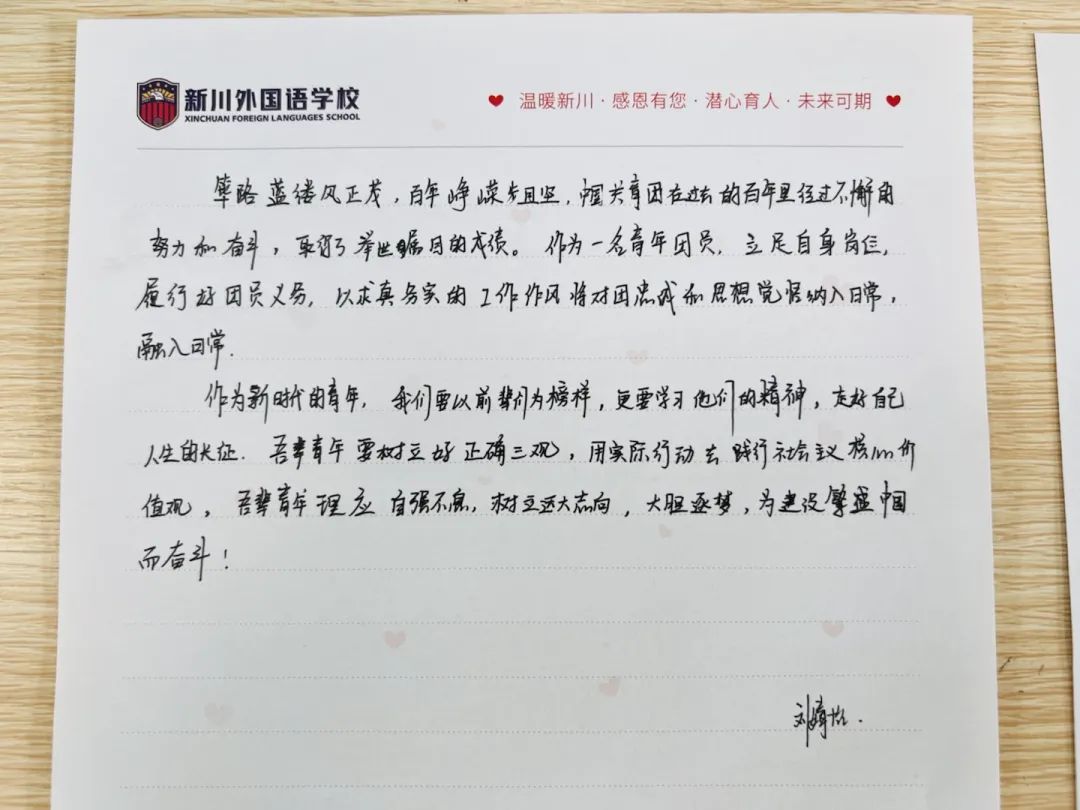 新川外国语学校
XINCHUAN FOREIGN LANGUAGES SCHOOL
温暖新川·感恩有您·潜心育人·未来可期
筚路蓝缕风正茂，百年峥嵘步且坚，中国共青团在过去的百年里经过不懈的
努力和奋斗，取得了举世瞩目的成绩。作为一名青年团员，立足自身岗位，
履行好团员义务，以求真务实的工作作风将对团忠诚和思想觉悟纳入日常，
融入日常.
作为新时代的青年，我们要以前辈们为榜样，更要学习他们的精神，走好自己
人生的长征.吾辈青年要树立好正确三观，用实际行动去践行社会主义核心价
值观，吾辈青年理应自强不息，树立远大志向，大胆逐梦，为建设繁盛中国
而奋斗！
刘